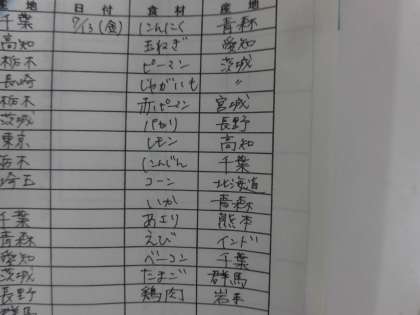 産地 日付 食材 産地
千葉 7/13(金) にんにく 青森
高知 玉ねぎ 愛知
栃木 ピーマン 茨城
長崎 じゃがいも 〃
栃木 赤ピーマン 宮城
茨城 パセリ 長野
東京 レモン 高知
栃木 にんじん 千葉
埼玉 コーン 北海道
いか 青森
千葉 あさり 熊本
青森 えび インド
愛知 ベーコン 千葉
茨城 たまご 群馬
長野 鶏肉 岩手
群馬